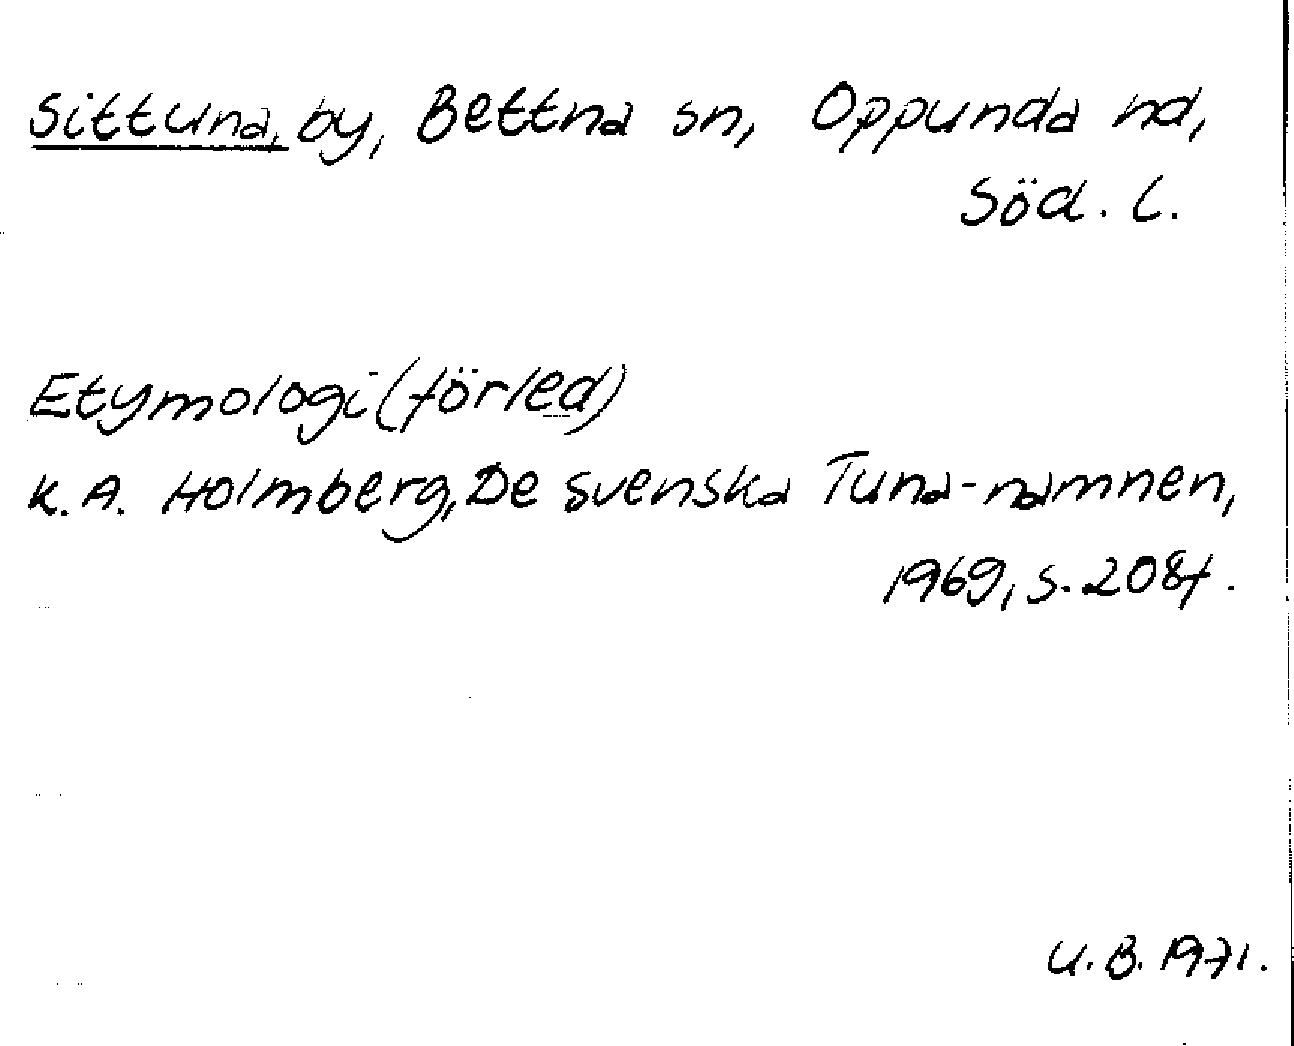 Sittuna, by, Bettna sn, Oppunda hd,
Söd. l.
Etymologi (förled)
K. A. Holmberg, De svenska Tuna-namnen,
1969, s. 208f.
U. B. 1971.